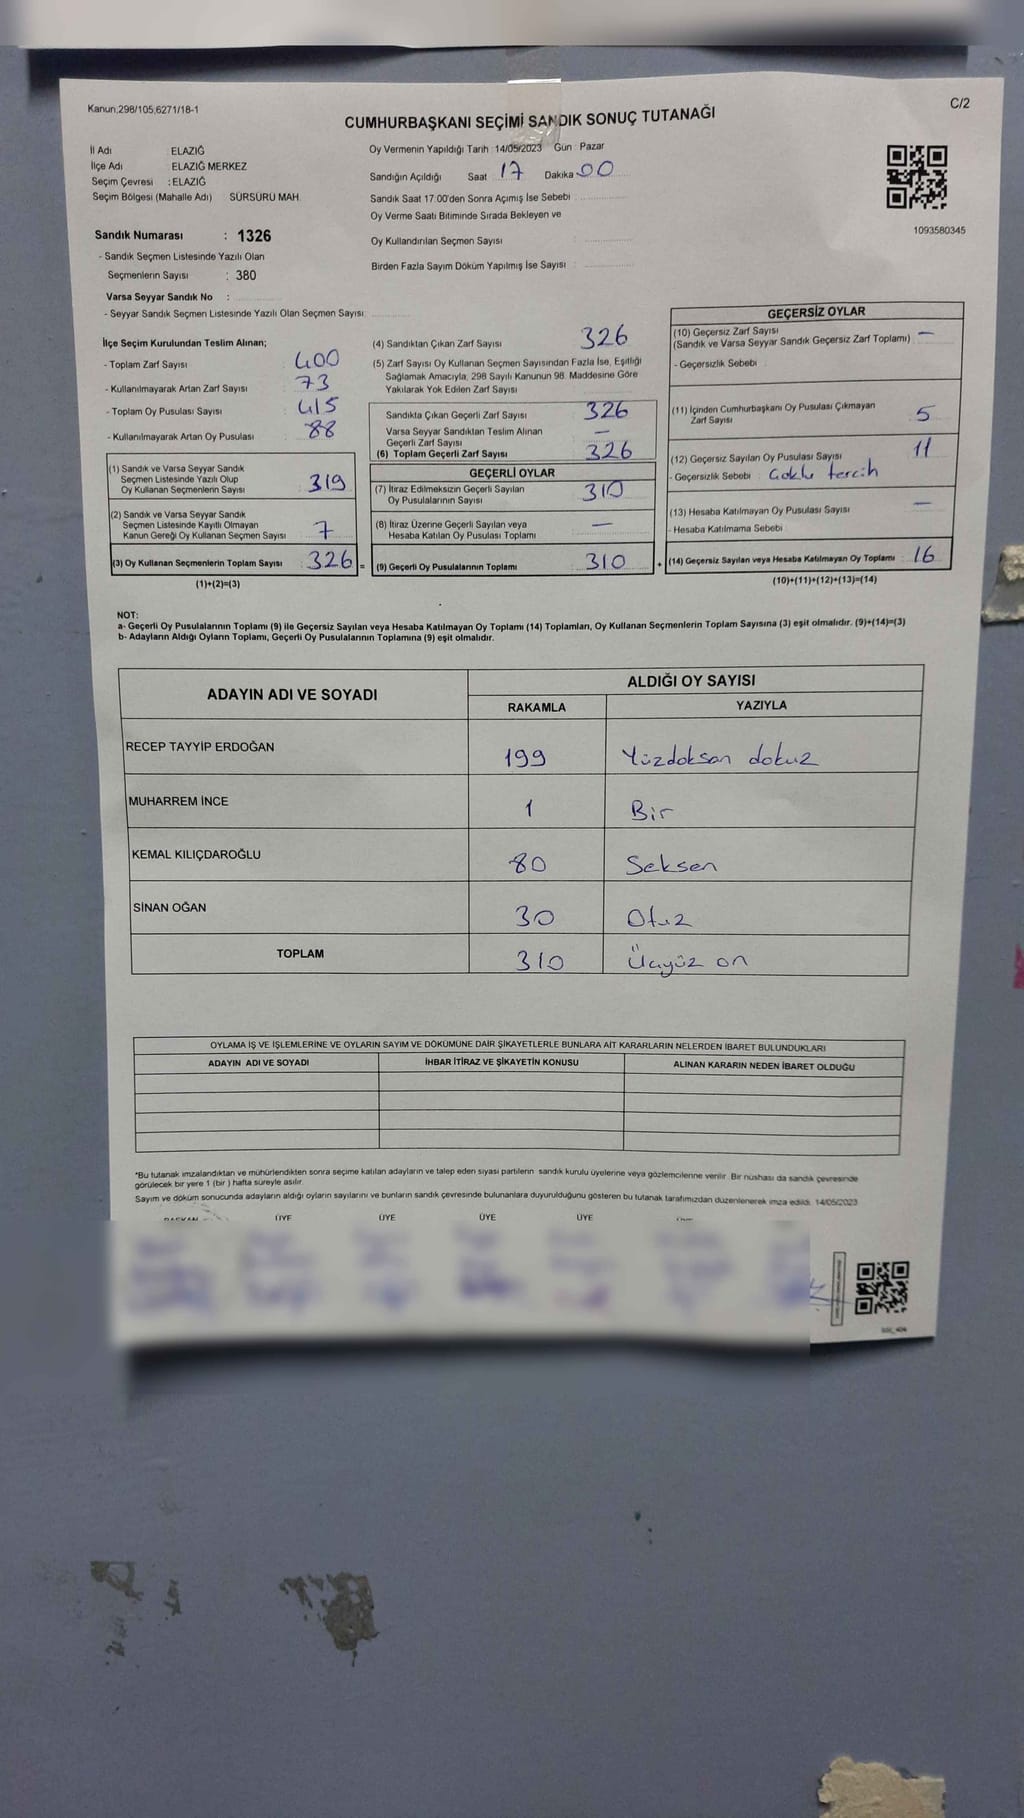 Kanun;298/105,6271/18-1
C/2
CUMHURBAŞKANI SEÇİMİ SANDIK SONUÇ TUTANAĞI
İl Adı : ELAZIĞ
İlçe Adı : ELAZIĞ MERKEZ
Seçim Çevresi : ELAZIĞ
Seçim Bölgesi (Mahalle Adı) SÜRSÜRÜ MAH.
Sandık Numarası : 1326
- Sandık Seçmen Listesinde Yazılı Olan
Seçmenlerin Sayısı : 380
Varsa Seyyar Sandık No :
- Seyyar Sandık Seçmen Listesinde Yazılı Olan Seçmen Sayısı:
Oy Vermenin Yapıldığı Tarih : 14/05/2023 Gün : Pazar
Sandığın Açıldığı Saat 17 Dakika 00
Sandık Saat 17:00'den Sonra Açımış İse Sebebi :
Oy Verme Saati Bitiminde Sırada Bekleyen ve
Oy Kullandırılan Seçmen Sayısı :
Birden Fazla Sayım Döküm Yapılmış İse Sayısı :
1093580345
İlçe Seçim Kurulundan Teslim Alınan;
- Toplam Zarf Sayısı : 400
- Kullanılmayarak Artan Zarf Sayısı : 73
- Toplam Oy Pusulası Sayısı : 415
- Kullanılmayarak Artan Oy Pusulası : 88
(1) Sandık ve Varsa Seyyar Sandık
Seçmen Listesinde Yazılı Olup
Oy Kullanan Seçmenlerin Sayısı : 319
(2) Sandık ve Varsa Seyyar Sandık
Seçmen Listesinde Kayıtlı Olmayan
Kanun Gereği Oy Kullanan Seçmen Sayısı : 7
(3) Oy Kullanan Seçmenlerin Toplam Sayısı : 326 =
(1)+(2)=(3)
(4) Sandıktan Çıkan Zarf Sayısı : 326
(5) Zarf Sayısı Oy Kullanan Seçmen Sayısından Fazla İse, Eşitliği
Sağlamak Amacıyla, 298 Sayılı Kanunun 98. Maddesine Göre
Yakılarak Yok Edilen Zarf Sayısı :
Sandıkta Çıkan Geçerli Zarf Sayısı : 326
Varsa Seyyar Sandıktan Teslim Alınan
Geçerli Zarf Sayısı : —
(6) Toplam Geçerli Zarf Sayısı : 326
GEÇERLİ OYLAR
(7) İtiraz Edilmeksizin Geçerli Sayılan
Oy Pusulalarının Sayısı : 310
(8) İtiraz Üzerine Geçerli Sayılan veya
Hesaba Katılan Oy Pusulası Toplamı : —
(9) Geçerli Oy Pusulalarının Toplamı : 310 +
GEÇERSİZ OYLAR
(10) Geçersiz Zarf Sayısı
(Sandık ve Varsa Seyyar Sandık Geçersiz Zarf Toplamı) : —
- Geçersizlik Sebebi :
(11) İçinden Cumhurbaşkanı Oy Pusulası Çıkmayan
Zarf Sayısı : 5
(12) Geçersiz Sayılan Oy Pusulası Sayısı : 11
- Geçersizlik Sebebi : Çoklu tercih
(13) Hesaba Katılmayan Oy Pusulası Sayısı : —
- Hesaba Katılmama Sebebi :
(14) Geçersiz Sayılan veya Hesaba Katılmayan Oy Toplamı : 16
(10)+(11)+(12)+(13)=(14)
NOT:
a- Geçerli Oy Pusulalarının Toplamı (9) ile Geçersiz Sayılan veya Hesaba Katılmayan Oy Toplamı (14) Toplamları, Oy Kullanan Seçmenlerin Toplam Sayısına (3) eşit olmalıdır. (9)+(14)=(3)
b- Adayların Aldığı Oyların Toplamı, Geçerli Oy Pusulalarının Toplamına (9) eşit olmalıdır.
ADAYIN ADI VE SOYADI ALDIĞI OY SAYISI
RAKAMLA YAZIYLA
RECEP TAYYİP ERDOĞAN 199 Yüzdoksan dokuz
MUHARREM İNCE 1 Bir
KEMAL KILIÇDAROĞLU 80 Seksen
SİNAN OĞAN 30 Otuz
TOPLAM 310 Üçyüz on
OYLAMA İŞ VE İŞLEMLERİNE VE OYLARIN SAYIM VE DÖKÜMÜNE DAİR ŞİKAYETLERLE BUNLARA AİT KARARLARIN NELERDEN İBARET BULUNDUKLARI
ADAYIN ADI VE SOYADI İHBAR İTİRAZ VE ŞİKAYETİN KONUSU ALINAN KARARIN NEDEN İBARET OLDUĞU
*Bu tutanak imzalandıktan ve mühürlendikten sonra seçime katılan adayların ve talep eden siyasi partilerin sandık kurulu üyelerine veya gözlemcilerine verilir. Bir nüshası da sandık çevresinde
görülecek bir yere 1 (bir ) hafta süreyle asılır.
Sayım ve döküm sonucunda adayların aldığı oyların sayılarını ve bunların sandık çevresinde bulunanlara duyurulduğunu gösteren bu tutanak tarafımızdan düzenlenerek imza edildi. 14/05/2023
BAŞKAN ÜYE ÜYE ÜYE ÜYE